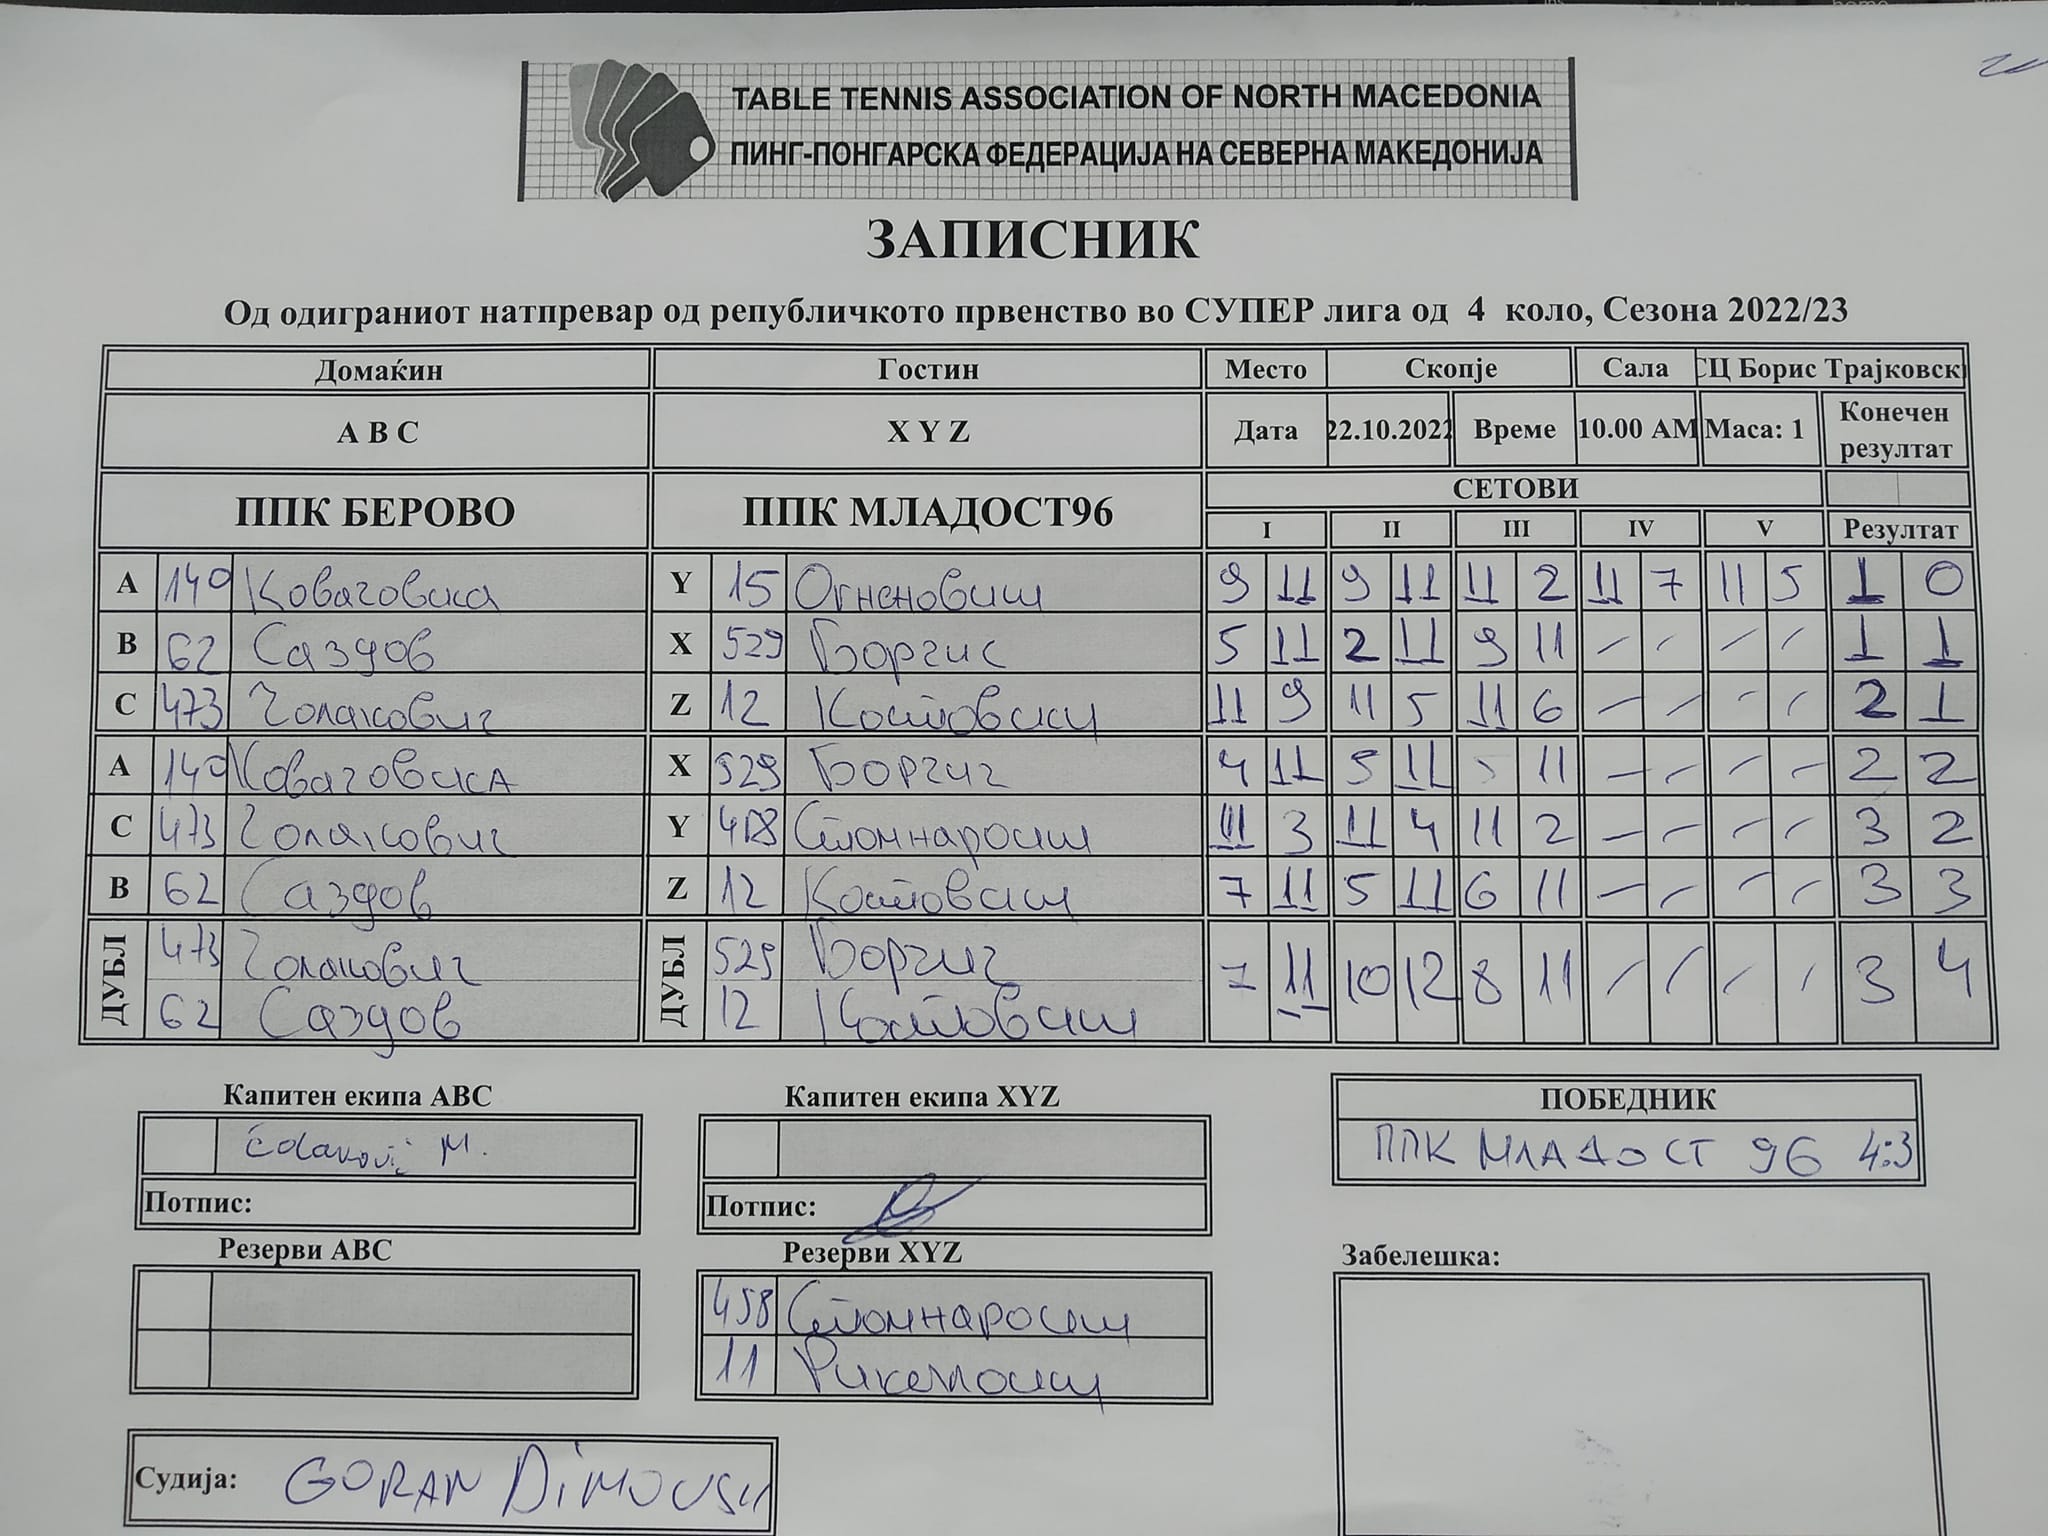 TABLE TENNIS ASSOCIATION OF NORTH MACEDONIA
ПИНГ-ПОНГАРСКА ФЕДЕРАЦИЈА НА СЕВЕРНА МАКЕДОНИЈА
ЗАПИСНИК
Од одиграниот натпревар од републичкото првенство во СУПЕР лига од 4 коло, Сезона 2022/23
Домаќин Гостин Место Скопје Сала СЦ Борис Трајковск
A B C X Y Z Дата 22.10.2022 Време 10.00 AM Маса: 1 Конечен резултат
ППК БЕРОВО ППК МЛАДОСТ96 СЕТОВИ
I II III IV V Резултат
A 149 Y 15 Огненовиш 9 11 9 11 11 2 11 7 11 5 1 0
B 62 Саздов X 529 Ѓоргис 5 11 2 11 9 11 – – – – 1 1
C 473 Чолаковиг Z 12 Костовски 11 9 11 5 11 6 – – – – 2 1
A 149 X 529 Ѓоргиг 4 11 5 11 5 11 – – – – 2 2
C 473 Чолаковиг Y 458 11 3 11 4 11 2 – – – – 3 2
B 62 Саздов Z 12 Костовски 7 11 5 11 6 11 – – – – 3 3
ДУБЛ 473 Чолаковиг ДУБЛ 529 Ѓоргиг 7 11 10 12 8 11 – – – – 3 4
62 Саздов 12 Костовски
Капитен екипа ABC Капитен екипа XYZ ПОБЕДНИК
Čolaković M. ППК МЛАДОСТ 96 4:3
Потпис: Потпис:
Резерви ABC Резерви XYZ Забелешка:
458
11
Судија: GORAN DIMOVSKI